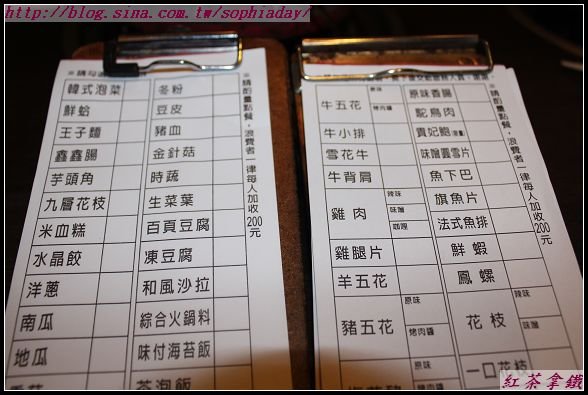 http://blog.sina.com.tw/sophiaday/
韓式泡菜 冬粉
鮮蛤 豆皮
王子麵 豬血
鑫鑫腸 金針菇
芋頭角 時蔬
九層花枝 生菜葉
米血糕 百頁豆腐
水晶餃 凍豆腐
洋蔥 和風沙拉
南瓜 綜合火鍋料
地瓜 味付海苔飯
茶泡飯
※請酌量點餐，浪費者一律每人加收200元
牛五花 原味 烤肉醬 原味香腸
鴕鳥肉
牛小排 貴妃鮑
雪花牛 味噌圓雪片
牛背肩 魚下巴
雞肉 辣味 味噌 咖哩 旗魚片
法式魚排
雞腿片 鮮蝦
羊五花 鳳螺
豬五花 原味 烤肉醬 花枝 辣味 味噌
原味 一口花枝
※請酌量點餐，浪費者一律每人加收200元
紅茶拿鐵